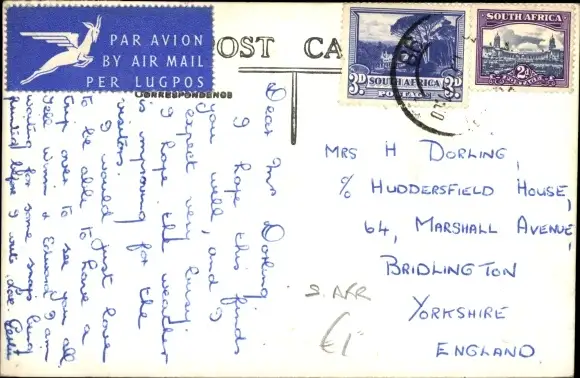 PAR AVION
BY AIR MAIL
PER LUGPOS
POST CA
CORRESPONDENCE
3D 3D
SOUTH AFRICA
POSTAGE
SOUTH AFRICA
2D
Dear Mrs Dorling
I hope this finds
you well, and I
expect very busy.
I hope the weather
is improving for the
visitors.
I would just love
to be able to have a
trip over to see you all.
Tell Winnie & Edward I am
waiting for some snaps being
printed before I write. Love
MRS H DORLING,
c/o HUDDERSFIELD HOUSE,
64, MARSHALL AVENUE,
BRIDLINGTON
YORKSHIRE
ENGLAND.
S. AFR
€1